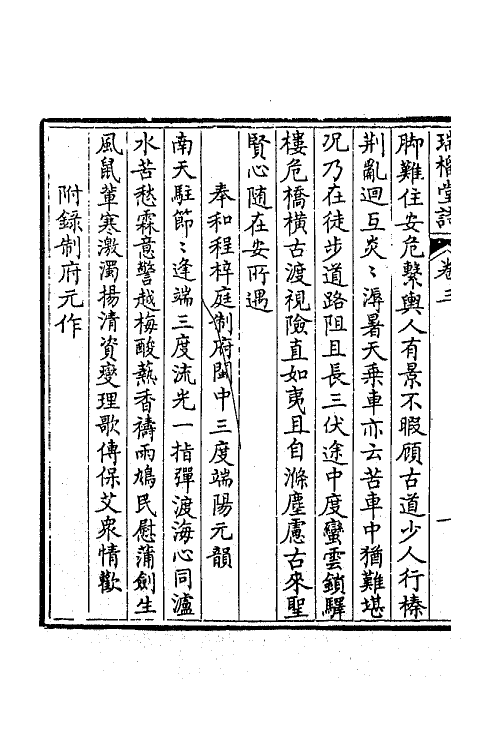 瑞榴堂詩 卷三 一
脚難住安危繫輿人有景不暇顧古道少人行榛
荆亂迴互炎〻溽暑天乗車亦云苦車中猶難堪
况乃在徒步道路阻且長三伏途中度蠻雲鎖驛
樓危橋橫古渡視險直如夷且自滌塵慮古來聖
賢心随在安所遇
奉和程梓庭制府閩中三度端陽元韻
南天駐節〻逢端三度流光一指彈渡海心同瀘
水苦愁霖意警越梅酸爇香禱雨鳩民慰蒲劍生
風鼠輩寒激濁揚清資燮理歌傳保艾衆情歡
附録制府元作